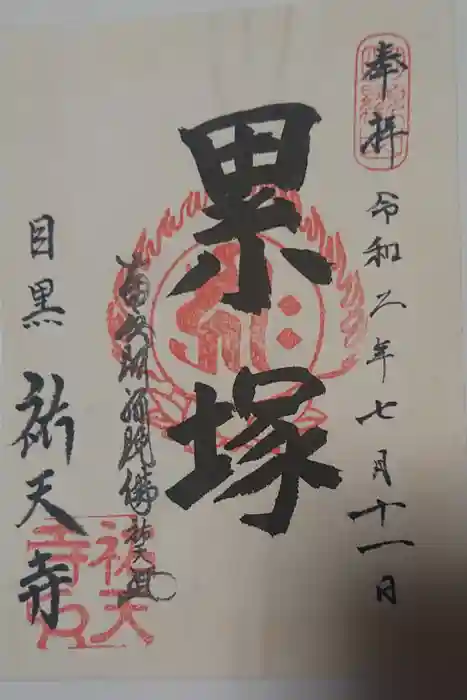 奉拝
令和二年七月十一日
累塚
南無阿弥陀佛 祐天
目黒 祐天寺